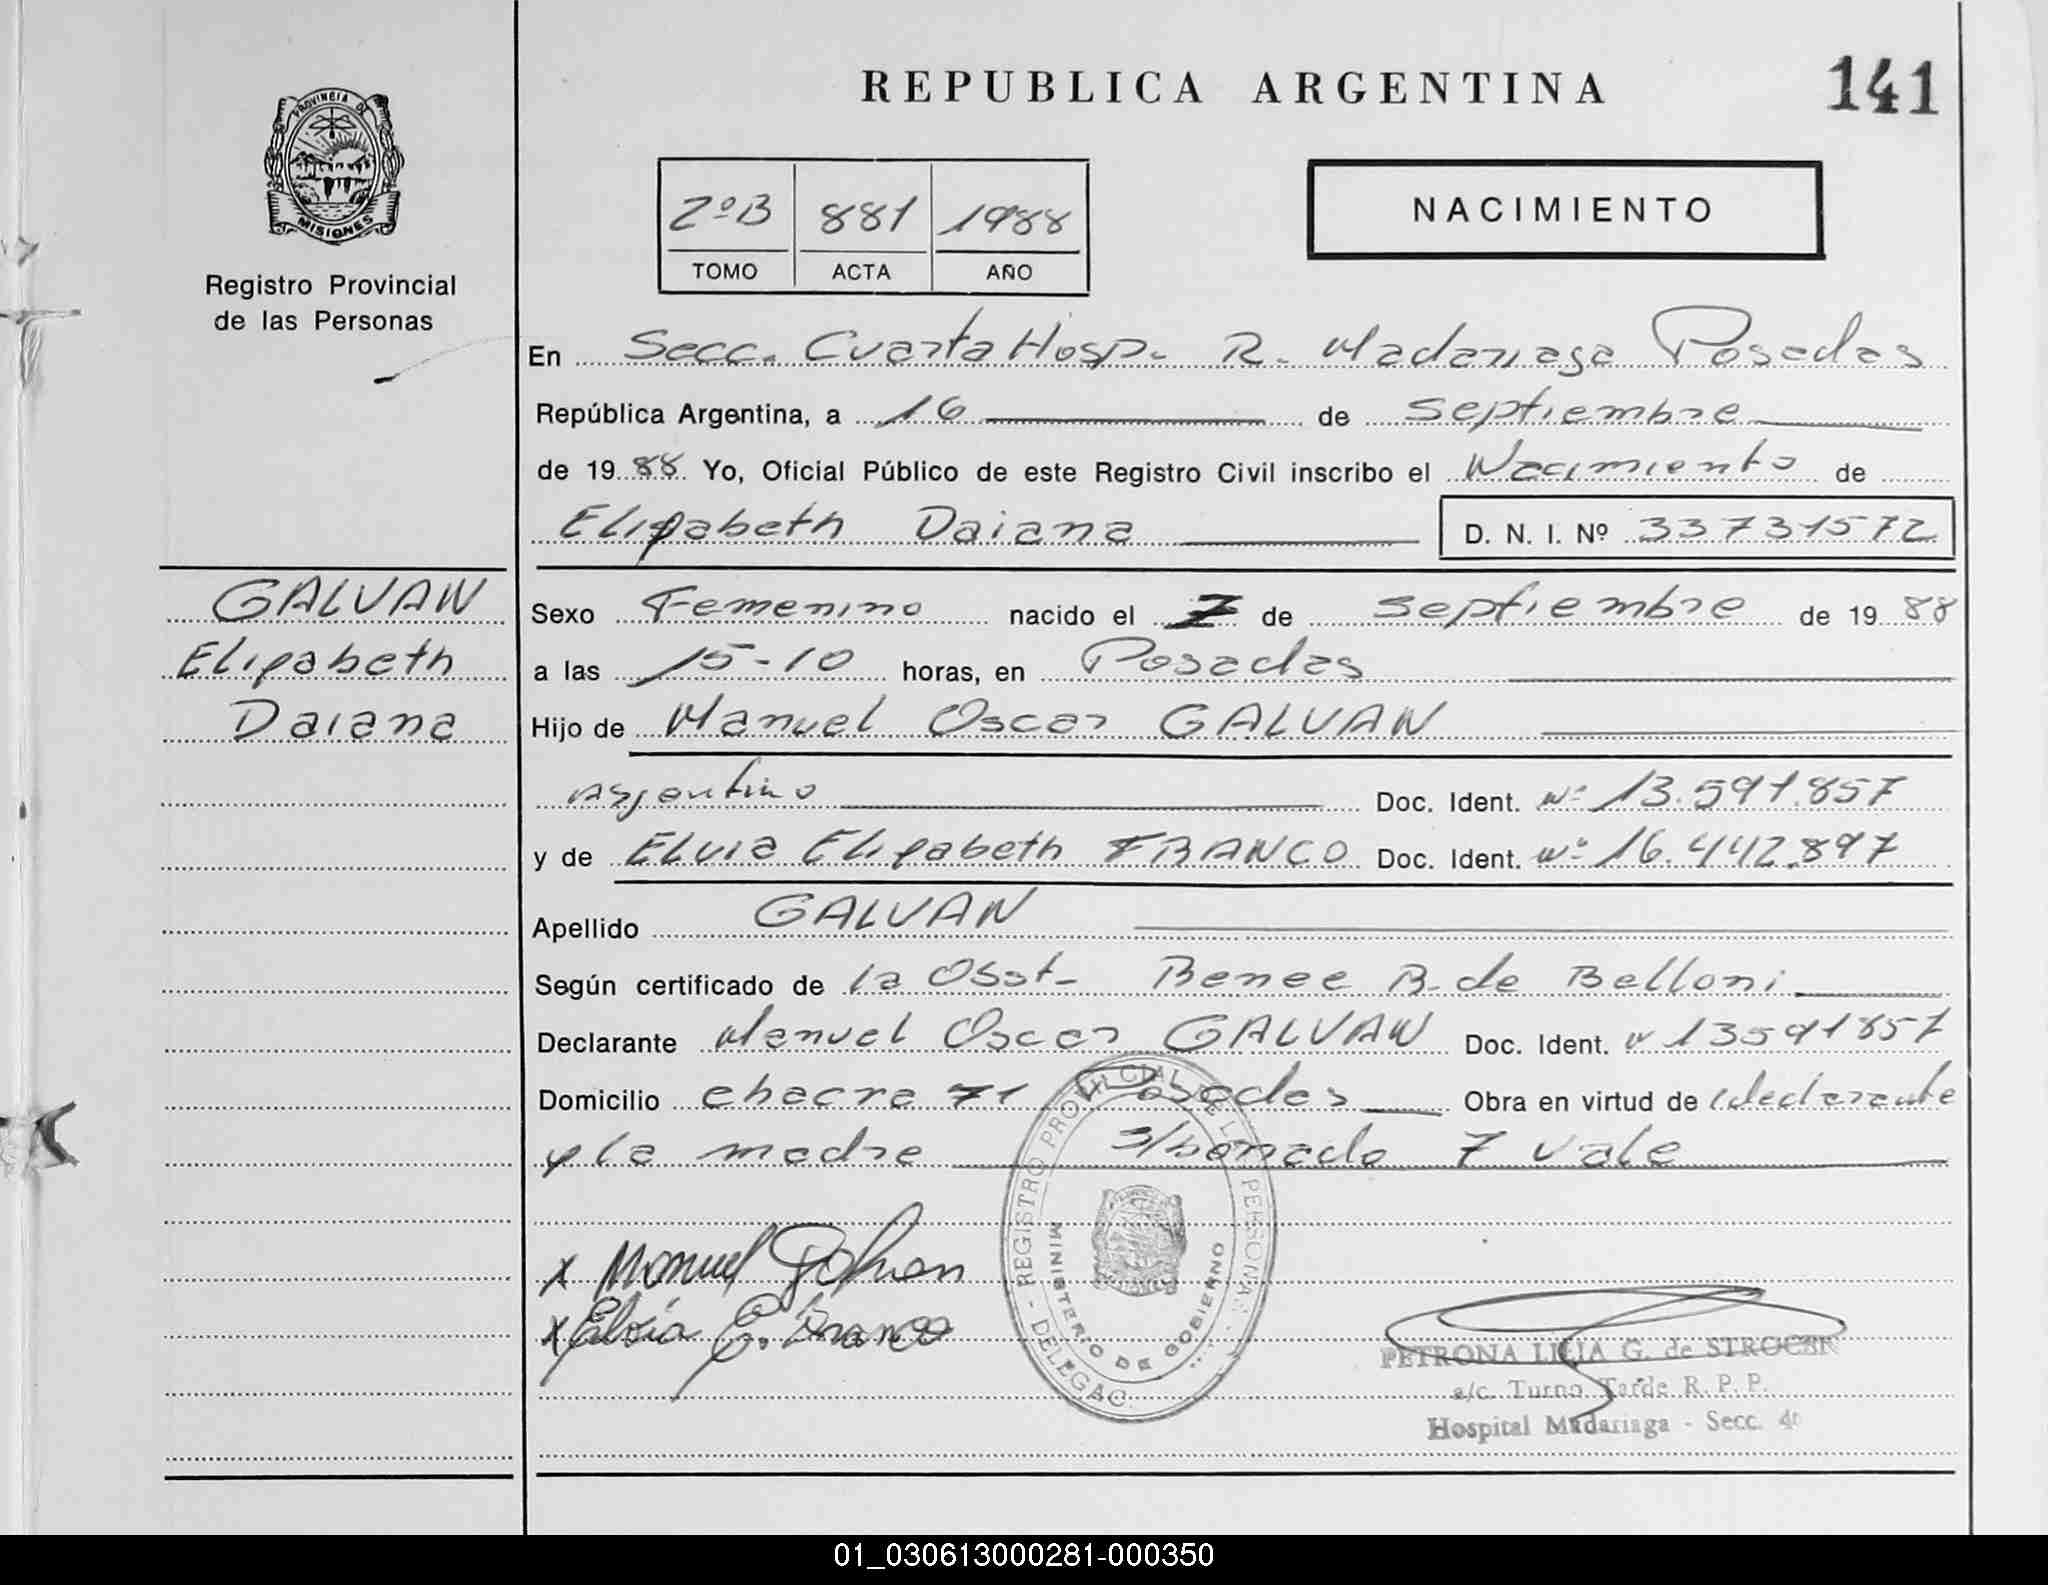 REPUBLICA ARGENTINA
141
PROVINCIA DE
MISIONES
Registro Provincial
de las Personas
2ºB 881 1988
TOMO ACTA AÑO
NACIMIENTO
En Secc. Cuarta Hosp. R. Madariaga Posadas
República Argentina, a 16 de Septiembre
de 1988 Yo, Oficial Público de este Registro Civil inscribo el Nacimiento de
Elizabeth Daiana D. N. I. Nº 33731572
GALVAN
Elizabeth
Daiana
Sexo Femenino nacido el 7 de Septiembre de 1988
a las 15-10 horas, en Posadas
Hijo de Manuel Oscar GALVAN
argentino Doc. Ident. Nº 13.591.857
y de Elvia Elizabeth FRANCO Doc. Ident. Nº 16.442.897
Apellido GALVAN
Según certificado de la Obst- Renee B. de Belloni
Declarante Manuel Oscar GALVAN Doc. Ident. N 13591857
Domicilio chacra 71 Posadas Obra en virtud de declarante
y la madre s/borrado 7 vale
x Manuel Galvan
x Elvia E. Franco
REGISTRO PROVINCIAL DE LAS PERSONAS - DELEGAC.
MINISTERIO DE GOBIERNO
PETRONA LILIA G. de
a/c. Turno Tarde R. P. P.
Hospital Madariaga - Secc. 4ª
01_030613000281-000350